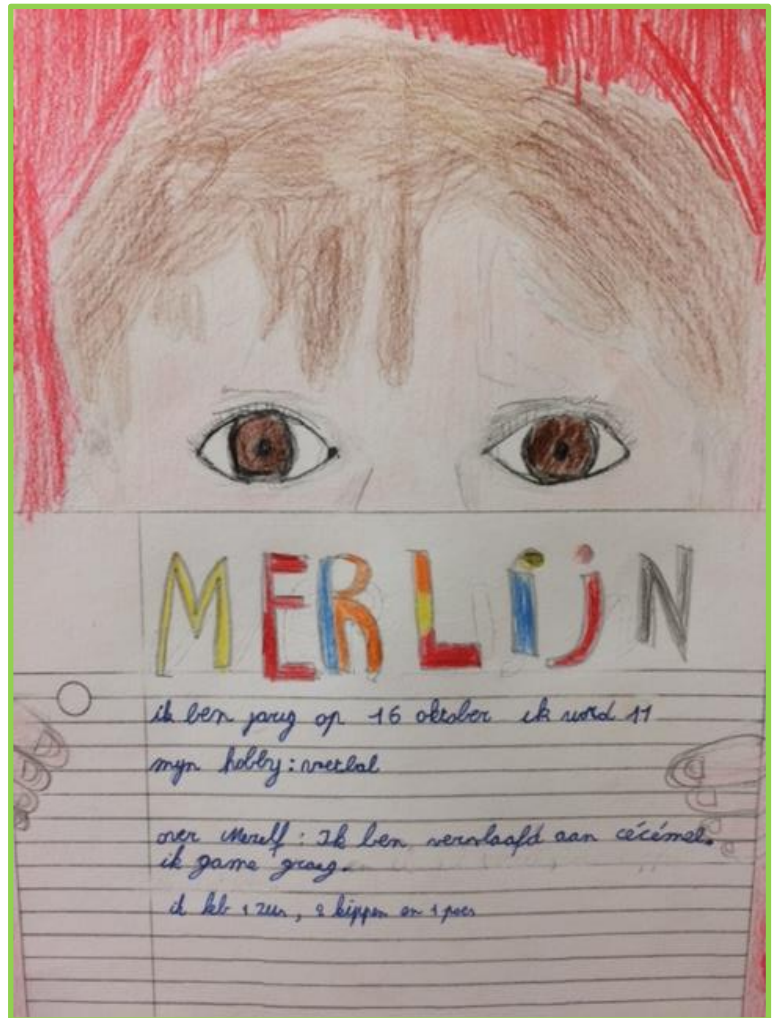 MERLiJN
ik ben jarig op 16 oktober ik word 11
mijn hobby: voetbal
over mezelf: Ik ben verslaafd aan cécémel.
ik game graag.
ik heb 1 zus, 2 kippen en 1 poes